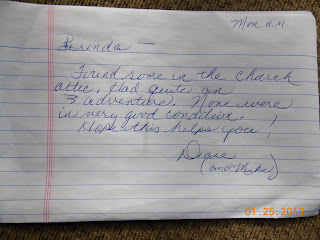 Mon A.M.
Brenda —
Found some in the church
attic, Had quite an
adventure. None were
in very good condition.
Hope this helps you!
(and Mike)
01.25.2013